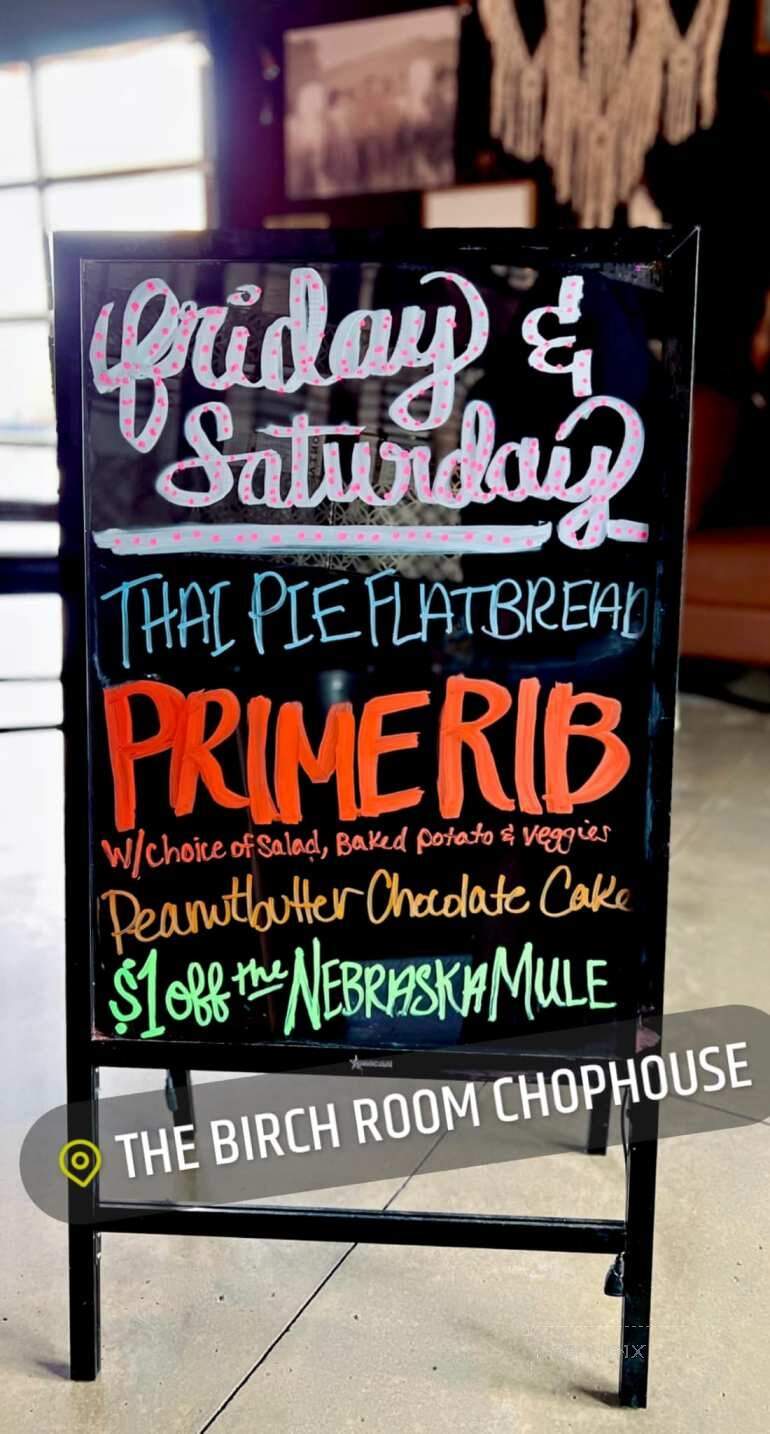 friday &
Saturday
THAI PIE FLATBREAD
PRIME RIB
W/choice of Salad, Baked potato & veggies
Peanutbutter Chocolate Cake
$1 off the NEBRASKA MULE
THE BIRCH ROOM CHOPHOUSE